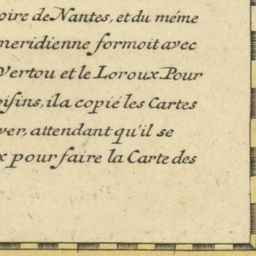 oire de Nantes, et du méme
meridienne formoit avec
Vertou et le Loroux. Pour
oisins, il a copié les Cartes
ver, attendant qu'il se
x pour faire la Carte des